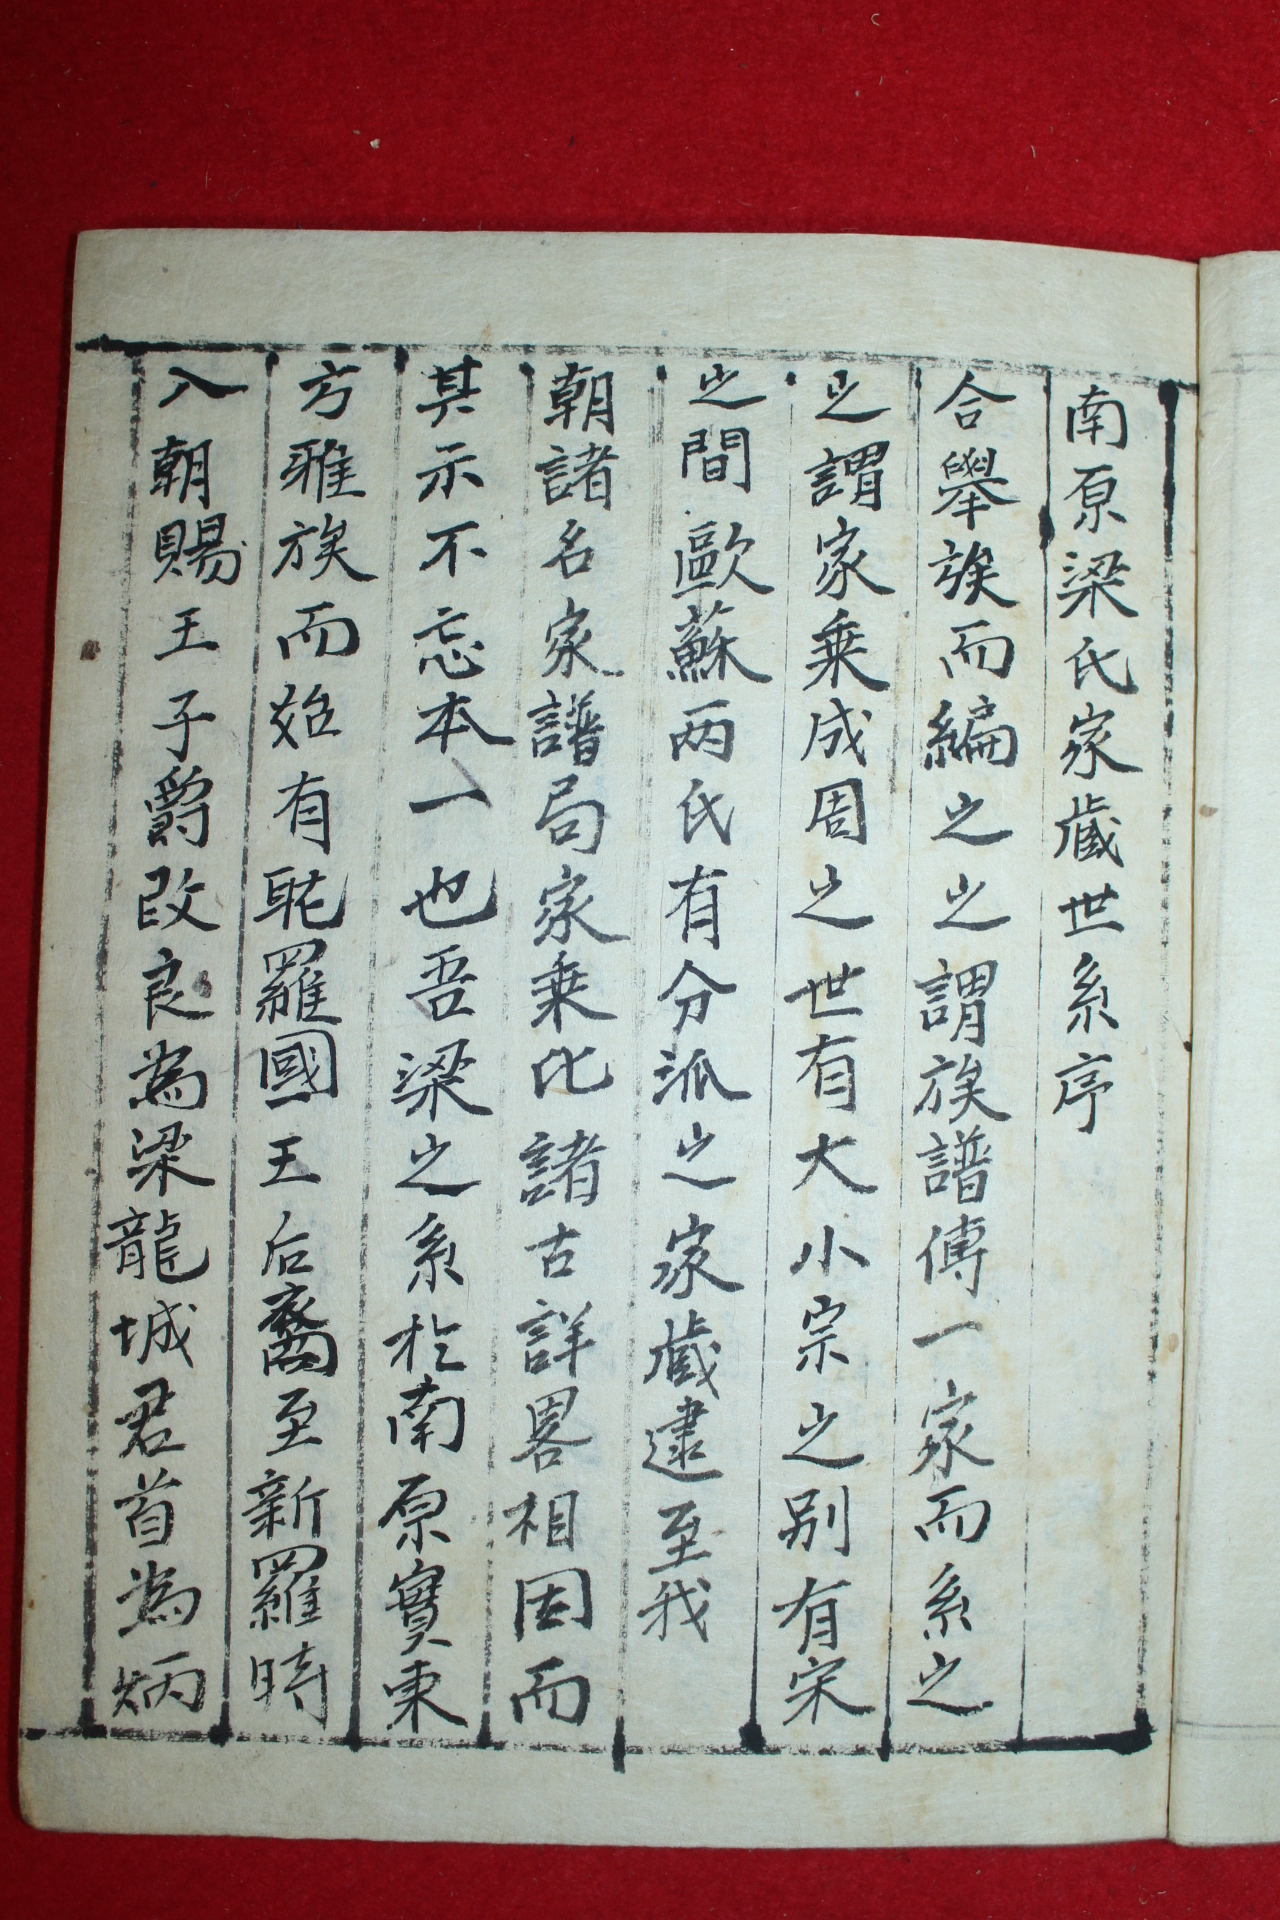 南原梁氏家藏世系序
合舉族而編之之謂族譜傳一家而系之
之謂家乗成周之世有大小宗之別有宋
之間歐蘇兩氏有分派之家藏逮至我
朝諸名家譜局家乗比諸古詳畧相因而
其示不忘本一也吾梁之系於南原實東
方雅族而始有耽羅國王后裔至新羅時
入朝賜王子爵改良為梁龍城君首為炳